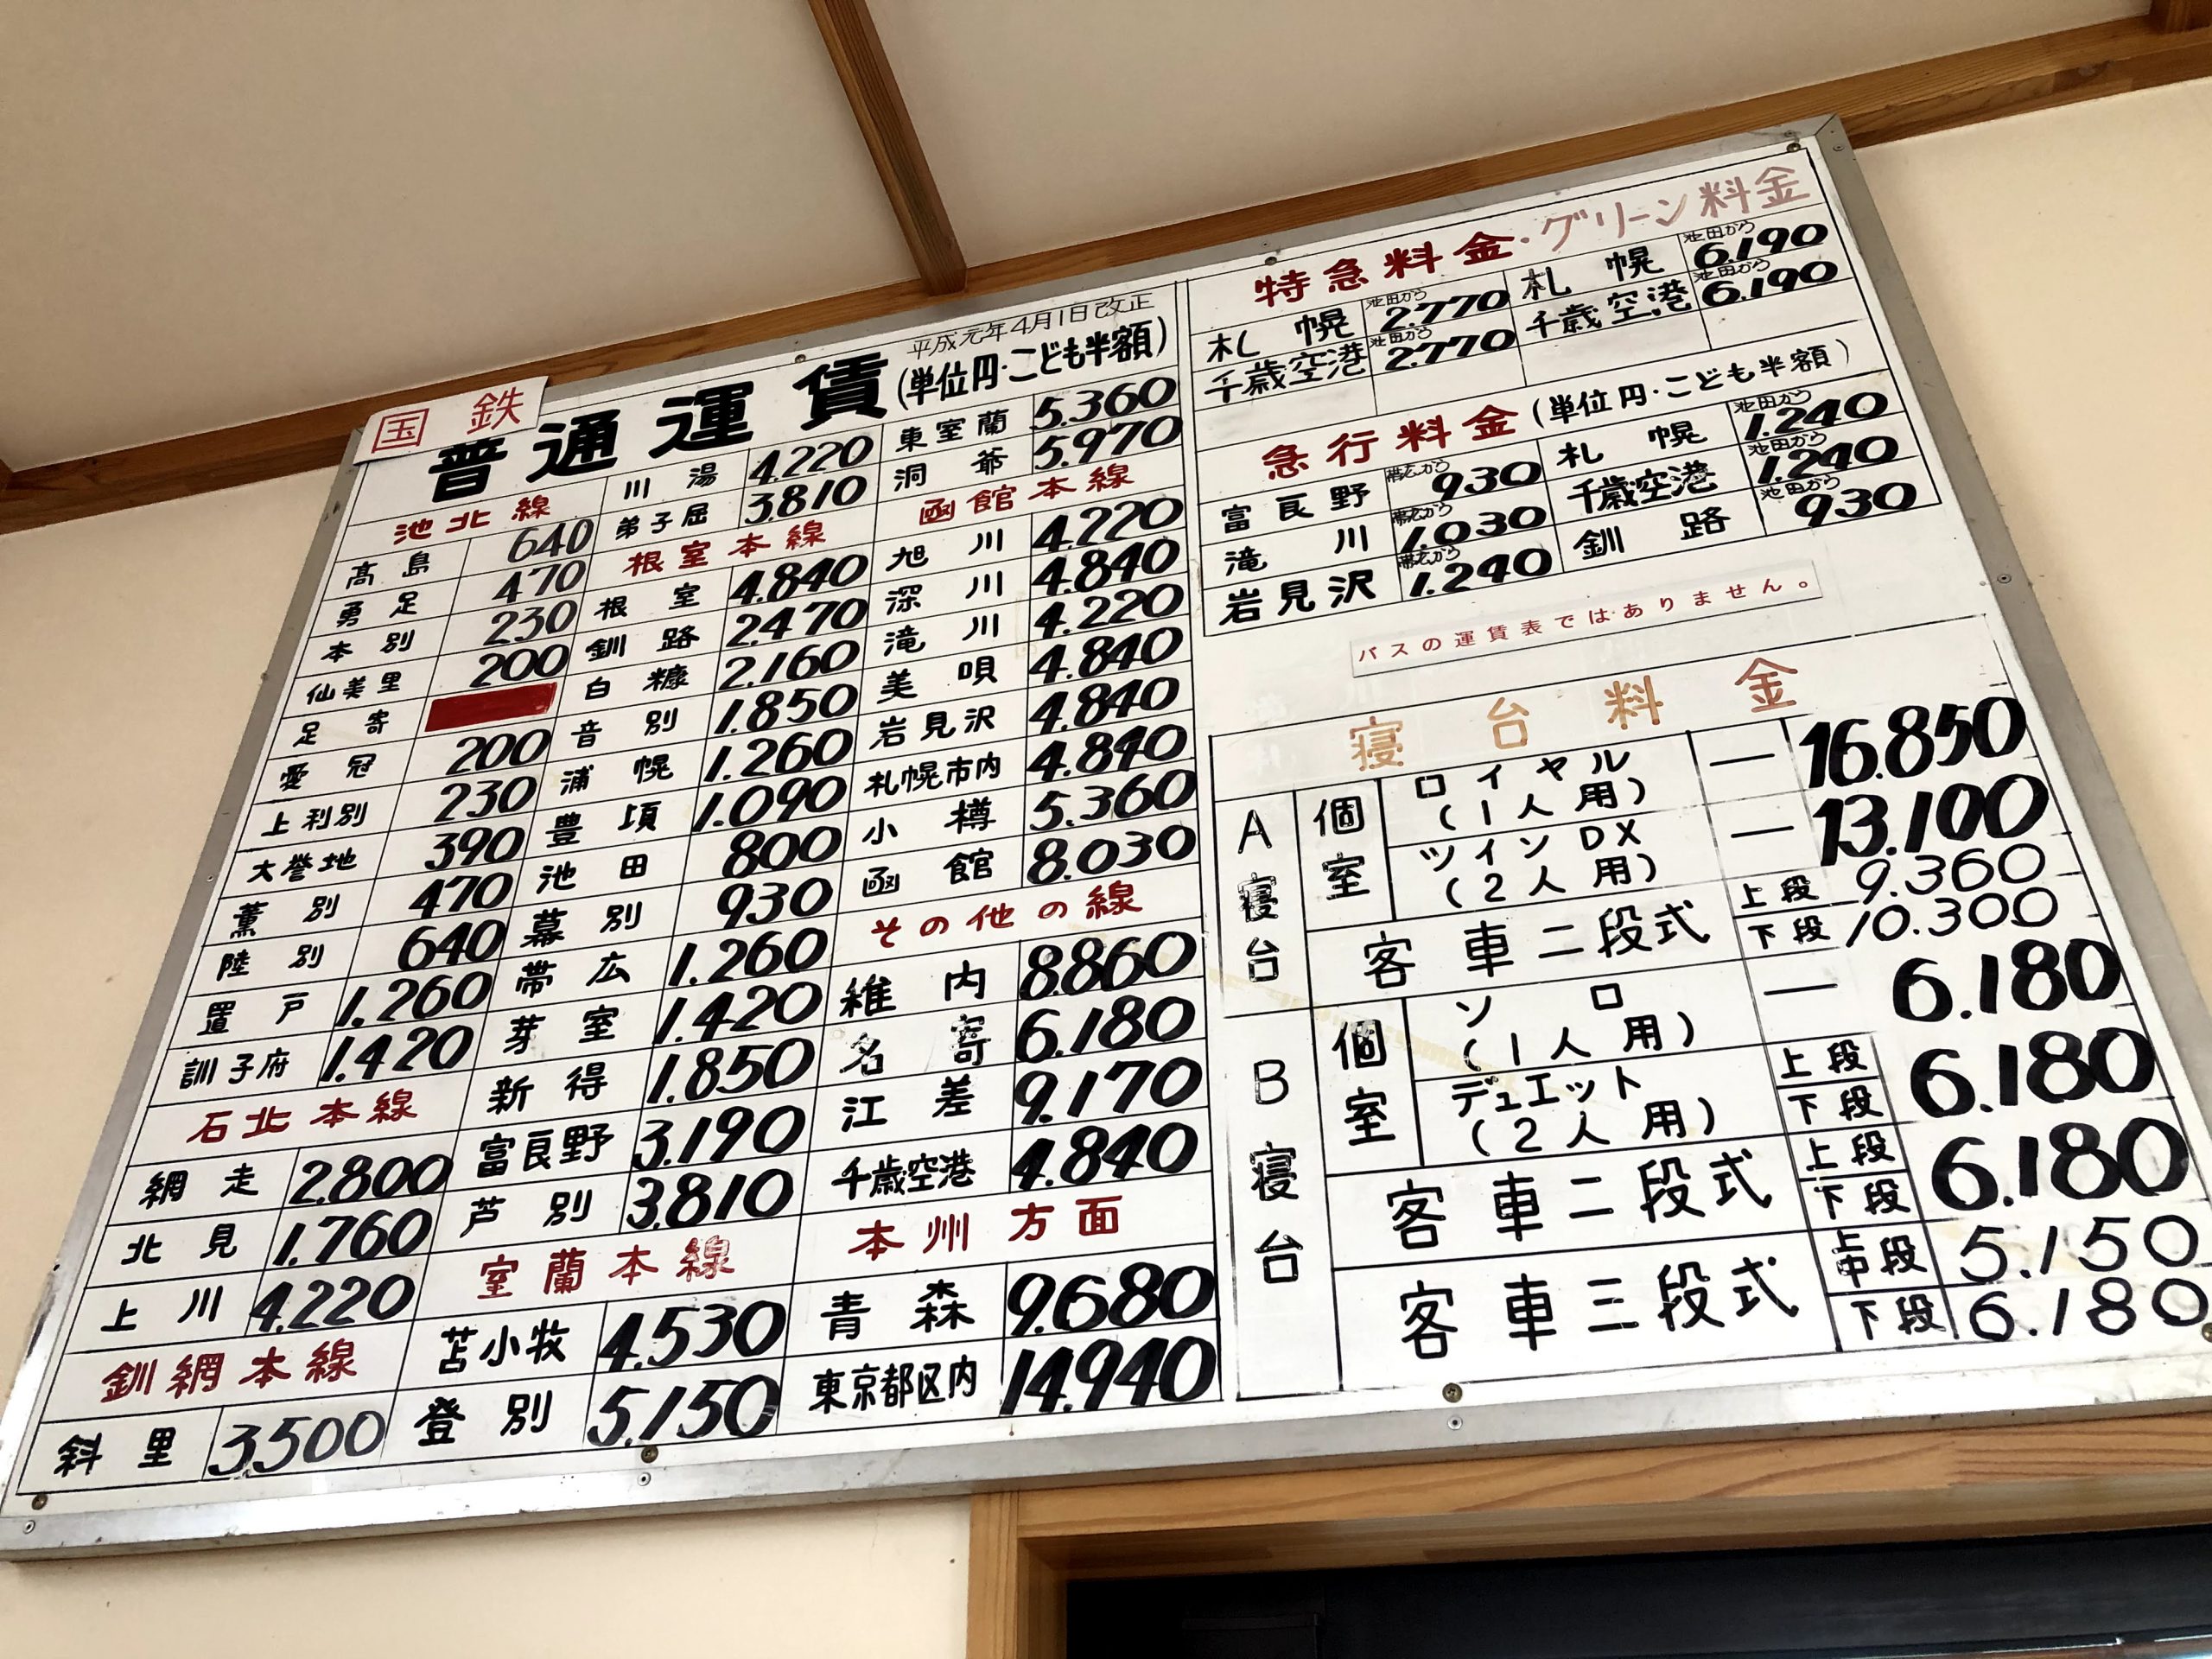 国鉄
普通運賃
平成元年4月1日改正
(単位円・こども半額)
池北線
高島 640
勇足 470
本別 230
仙美里 200
足寄
愛冠 200
上利別 230
大誉地 390
薫別 470
陸別 640
置戸 1.260
訓子府 1.420
石北本線
網走 2.800
北見 1.760
上川 4.220
釧網本線
斜里 3.500
川湯 4.220
弟子屈 3.810
根室本線
根室 4.840
釧路 2.470
白糠 2.160
音別 1.850
浦幌 1.260
豊頃 1.090
池田 800
幕別 930
帯広 1.260
芽室 1.420
新得 1.850
富良野 3.190
芦別 3.810
室蘭本線
苫小牧 4.530
登別 5.150
東室蘭 5.360
洞爺 5.970
函館本線
旭川 4.220
深川 4.840
滝川 4.220
美唄 4.840
岩見沢 4.840
札幌市内 4.840
小樽 5.360
函館 8.030
その他の線
稚内 8.860
名寄 6.180
江差 9.170
千歳空港 4.840
本州方面
青森 9.680
東京都区内 14.940
特急料金・グリーン料金
札幌 池田から 2.770 札幌 池田から 6.190
千歳空港 池田から 2.770 千歳空港 池田から 6.190
急行料金(単位円・こども半額)
富良野 帯広から 930 札幌 池田から 1.240
滝川 帯広から 1.030 千歳空港 池田から 1.240
岩見沢 帯広から 1.240 釧路 池田から 930
バスの運賃表ではありません。
寝台料金
A寝台
個室
ロイヤル (1人用) — 16.850
ツインDX (2人用) — 13.100
客車二段式 上段 9.360
下段 10.300
B寝台
個室
ソロ (1人用) — 6.180
デュエット (2人用) 上段 下段 6.180
客車二段式 上段 下段 6.180
客車三段式 上中段 5.150
下段 6.180